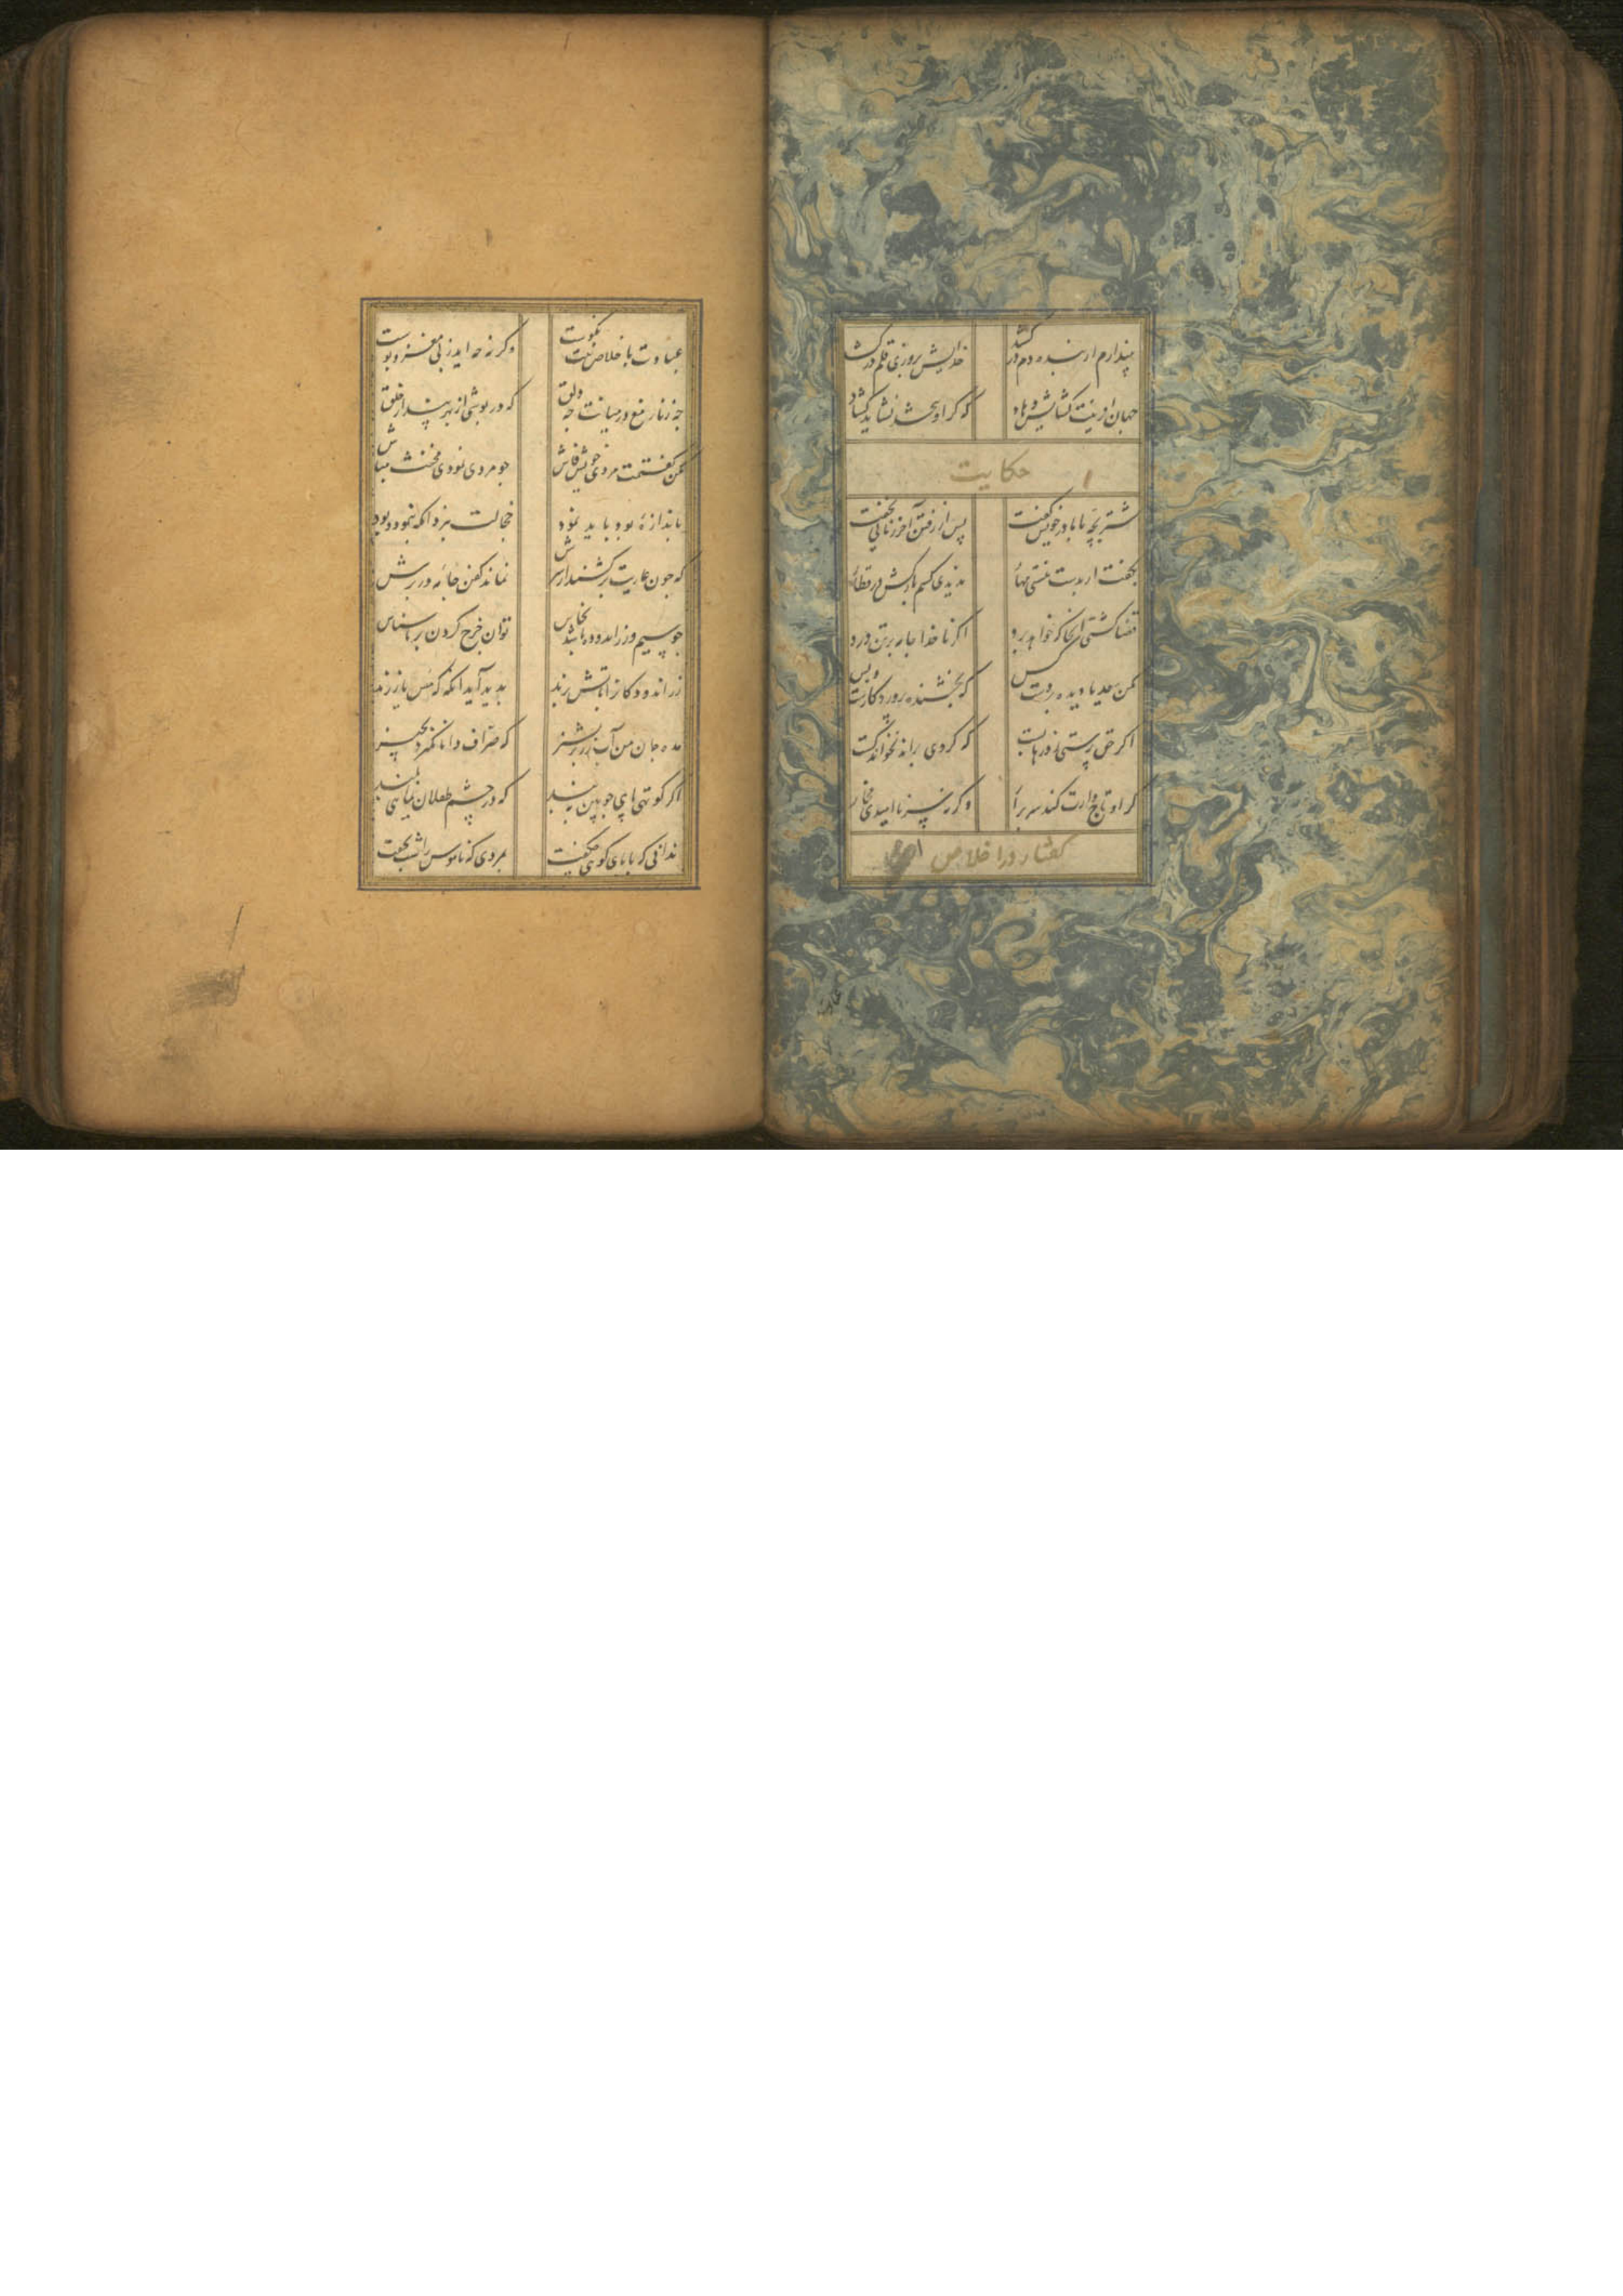 نپندارم ار بنده دم در کشد خدایش بروزی قلم در کشد
جهان افرینت کشایش دهاد که گر او ببندد نشاید کشاد
حکایت
شتر بچه با مادر خویش گفت پس از رفتن آخر زمانی بخفت
بگفت ار بدست منستی مهار ندیدی کسم بارکش در قطار
قضا کشتی آنجا که خواهد برد اگر ناخدا جامه بر تن درد
مکن سعدیا دیده بر دست کس که بخشنده پروردکارست و بس
اگر حق پرستی ز درها بست که گر وی براند نخواند کست
گر او تاجدارت کند سر برار وگرنه سر ناامیدی بخار
گفتار در اخلاص
عبادت باخلاص نیت نکوست وگرنه چه اید ز بی مغز و پوست
چه زنار مغ در میانت چه دلق که در پوشی از بهر پندار خلق
مکن گفتمت مردی خویش فاش چو مردی نمودی مخنث مباش
باندازه بود باید نمود خجالت نبرد انکه ننمود و بود
که چون عاریت برکشند از سرش نماند کهن جامه در برش
چو سیم و زر اندوده باشد نحاس توان خرج کردن بر ناشناس
زر اندودکانرا باتش برند بدید آید انکه که مس یا زرند
منه جان من آب زر بر پشیز که صراف دانا نگیرد بچیز
اگر کوتهی پای چوبین مبند که در چشم طفلان نمایی بلند
ندانی که بابای کوهی چه گفت بمردی که ناموس را شب نخفت